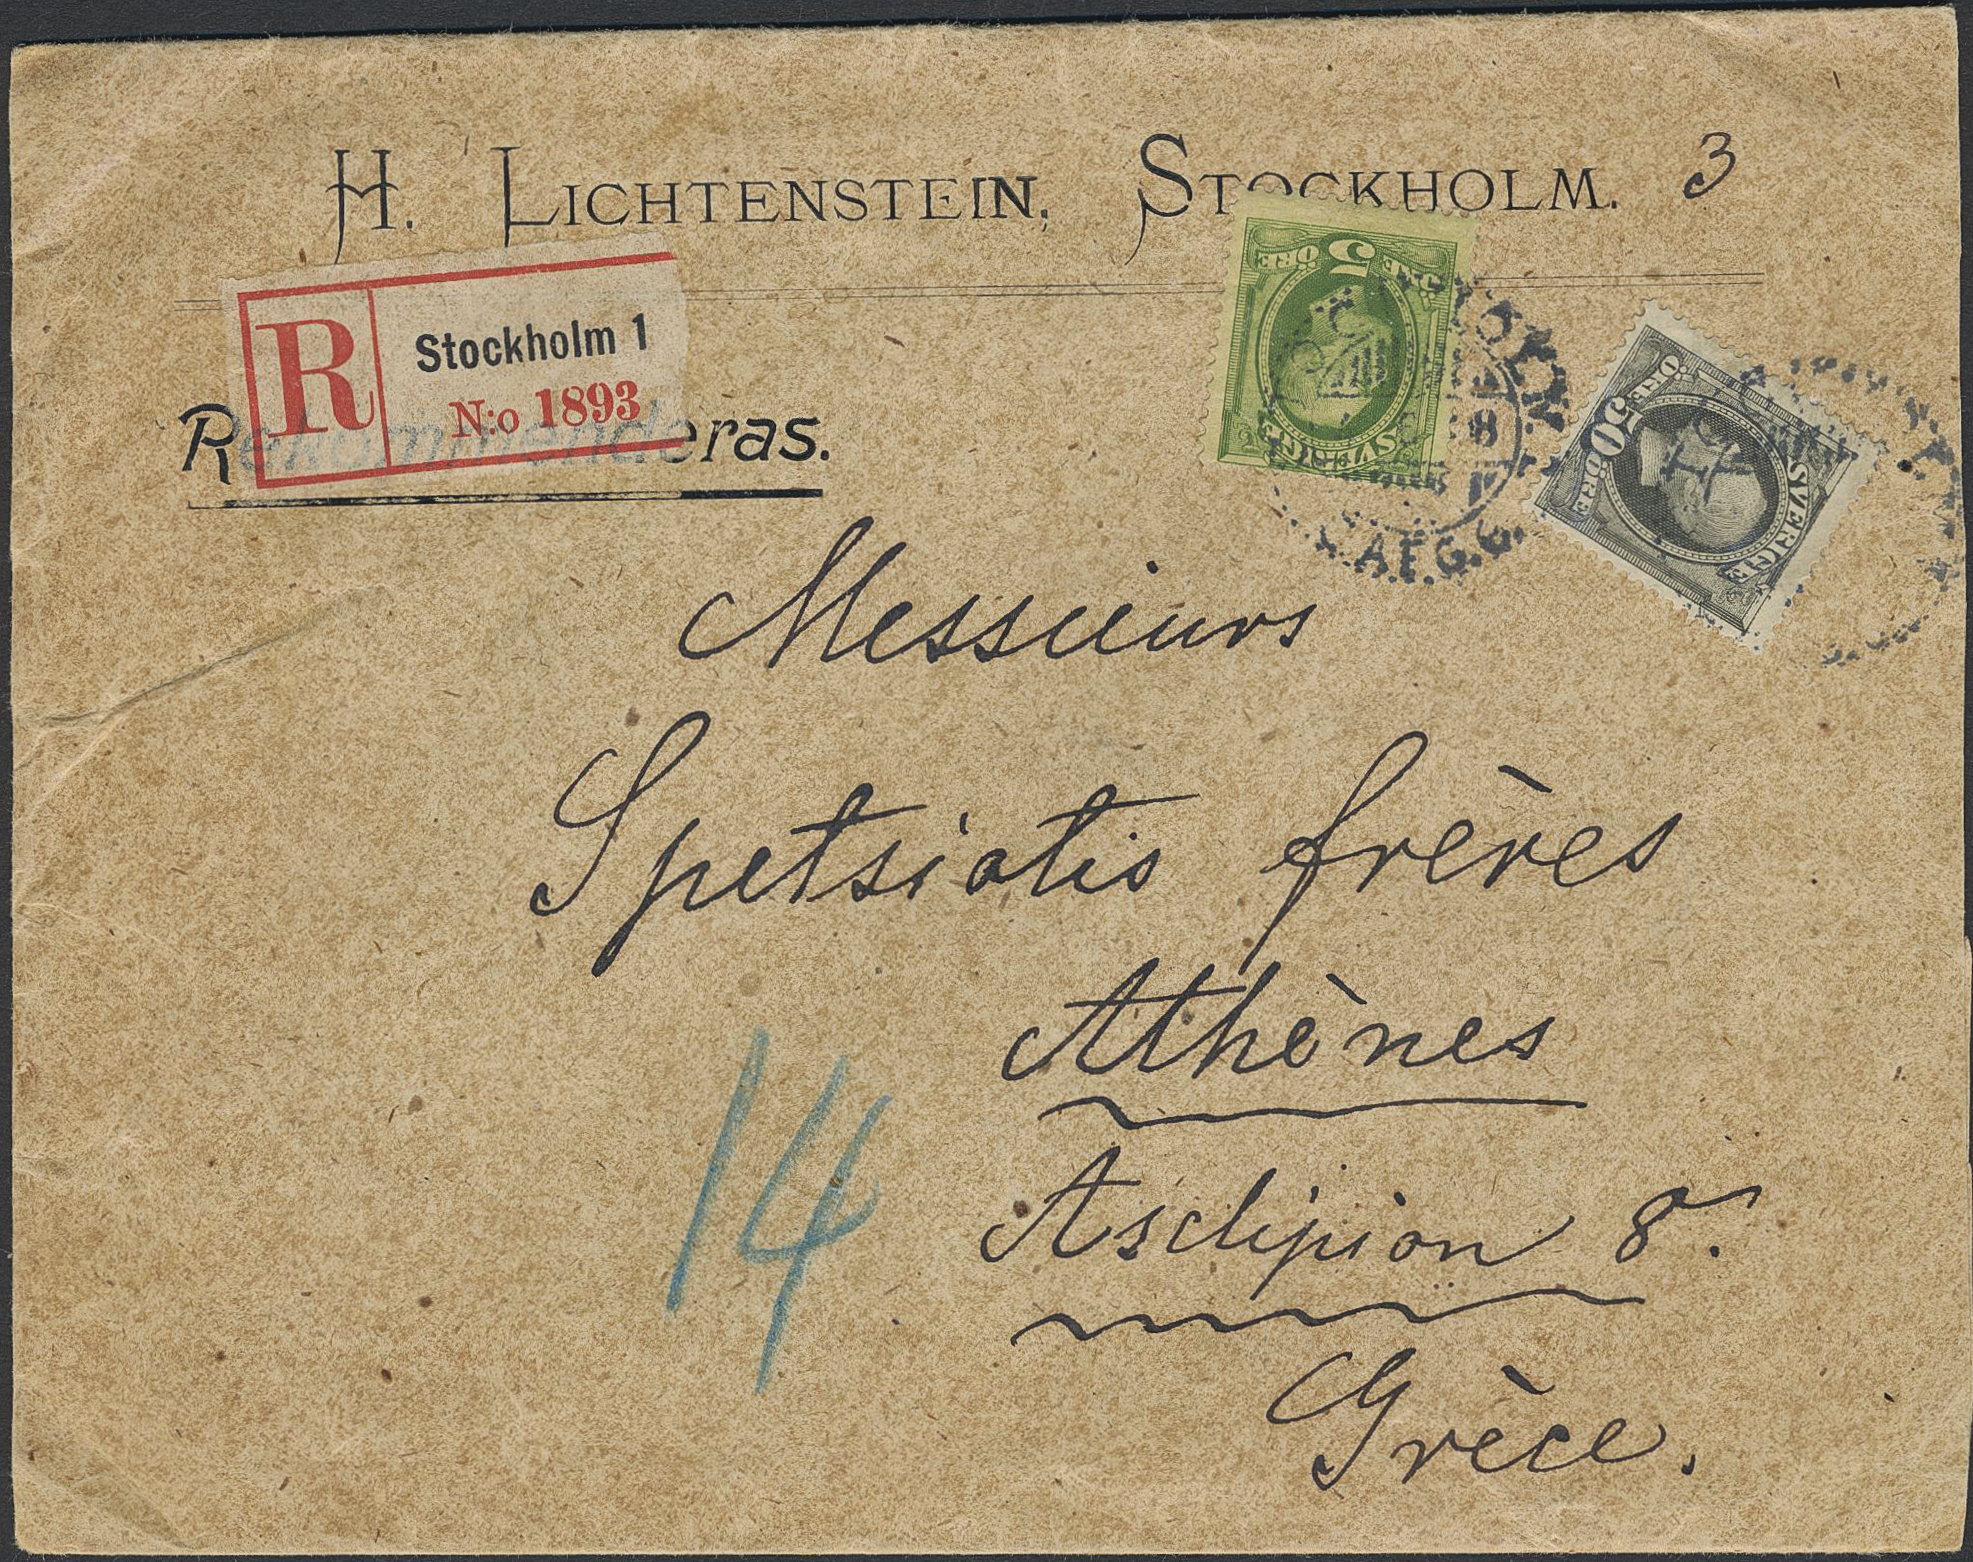 H. LICHTENSTEIN, STOCKHOLM. 3
R
Stockholm 1
N:o 1893
Rekommenderas.
5 ÖRE ÖRE
SVERIGE
50 ÖRE ÖRE
SVERIGE
A.F.G.
Messieurs
Spetsiotis frères
Athènes
Asclipion 8.
Grèce.
14